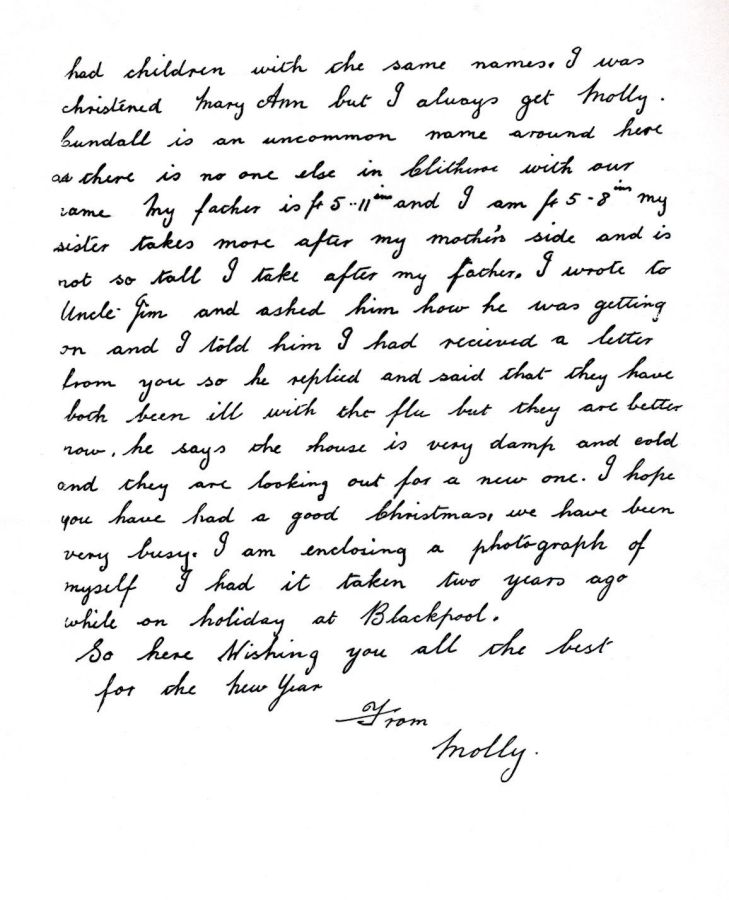 had children with the same names. I was
christened Mary Ann but I always get Molly.
Cundall is an uncommon name around here
as there is no one else in Clitheroe with our
name My father is ft 5-11 ins and I am ft 5-8 ins my
sister takes more after my mother's side and is
not so tall I take after my father. I wrote to
Uncle Jim and asked him how he was getting
on and I told him I had recieved a letter
from you so he replied and said that they have
both been ill with the flu but they are better
now. he says the house is very damp and cold
and they are looking out for a new one. I hope
you have had a good Christmas, we have been
very busy. I am enclosing a photograph of
myself I had it taken two years ago
while on holiday at Blackpool.
So here Wishing you all the best
for the New Year
From
Molly.